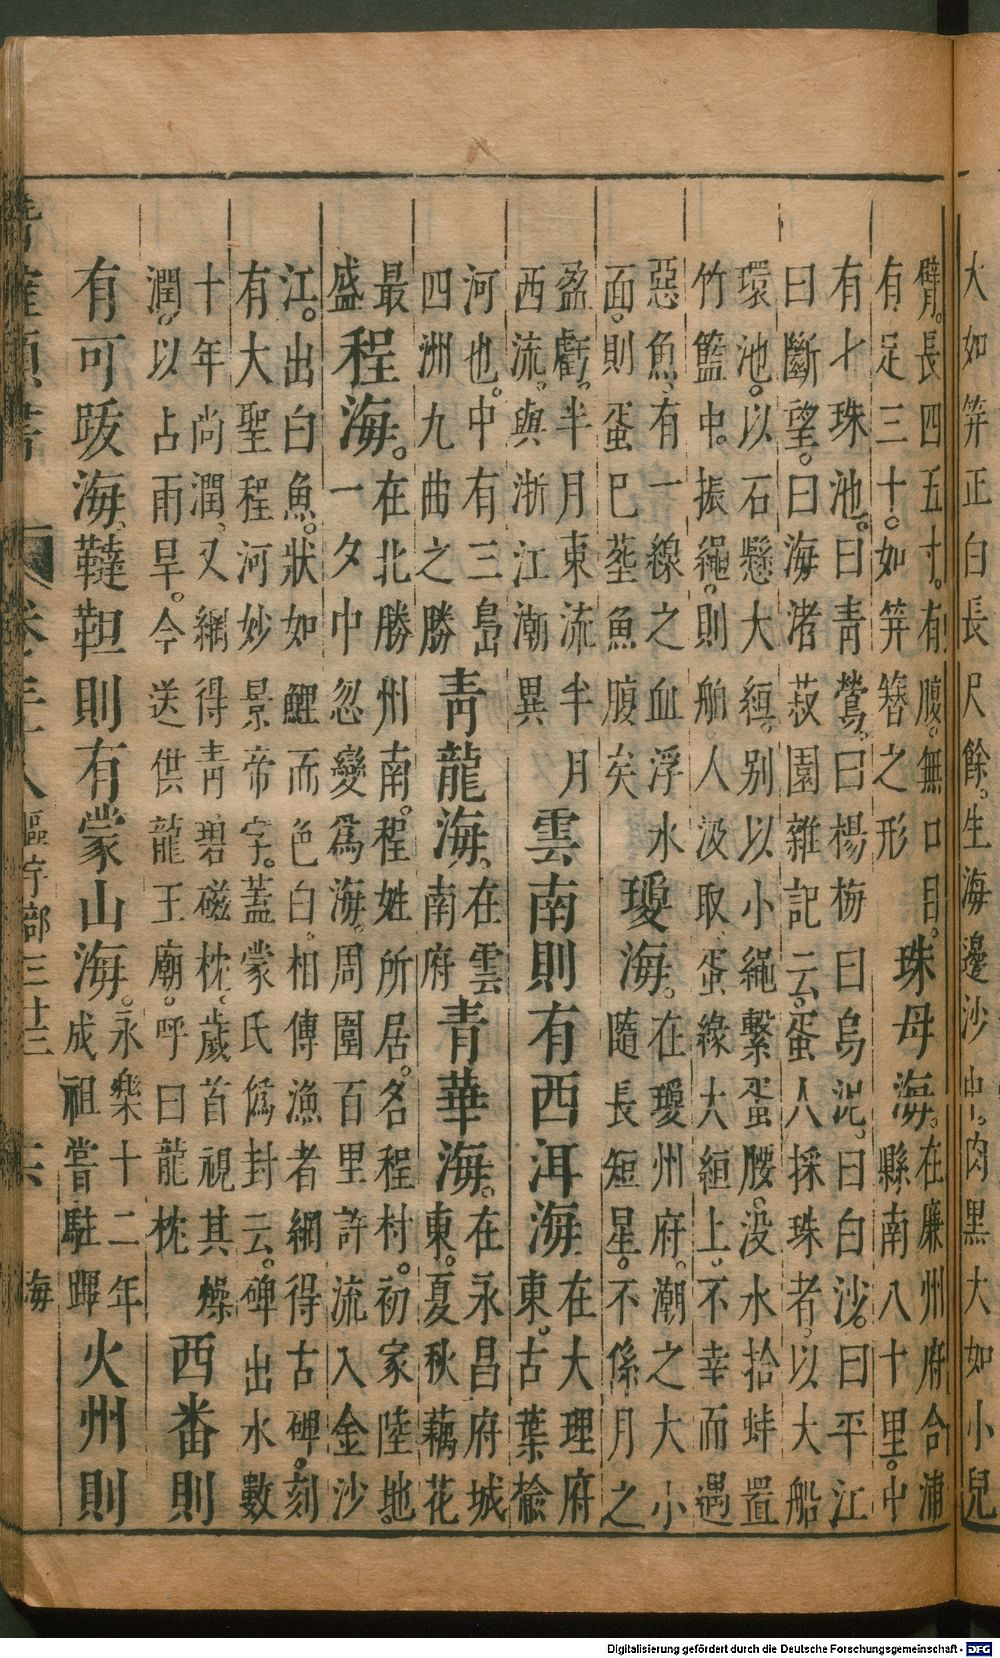 大如笄正白長尺餘。生海邊沙中。肉黑大如小兒
臂。長四五寸。有腹。無口目。
有足三十。如笄簪之形
珠母海。
在廉州府合浦
縣南八十里。中
有七珠池。曰青鶯。曰楊梅曰烏泥。曰白沙。曰平江
曰斷望。曰海渚菽園雜記云。蛋人採珠者。以大船
環池。以石懸大絙。别以小繩繫蛋腰。没水拾蚌置
竹籃中。振繩。則舶人汲取蛋緣大絙上。不幸而遇
惡魚。有一線之血浮水
面。則蛋巳塟魚腹矣
瓊海。
在瓊州府。潮之大小
隨長短星。不係月之
盈虧。半月東流半月
西流。與浙江潮異
雲南則有西洱海
在大理府
東。古葉榆
河也。中有三島
四洲九曲之勝
青龍海。
在雲
南府
青華海。
在永昌府城
東。夏秋藕花
最
盛
程海。
在北勝州南。程姓所居。名程村。初家陸地。
一夕中忽變爲海。周圍百里許流入金沙
江。出白魚。狀如鯉而色白。相傳漁者網得古碑。刻
有大聖程河妙景帝字。蓋蒙氏僞封云。碑出水數
十年尚潤。又網得青碧磁枕。歲首視其燥
潤。以占雨旱。今送供龍王廟。呼曰龍枕
西番則
有可跋海。韃靼則有蒙山海。
永樂十二年
成祖嘗駐蹕
火州則
確類書 區宇部 海
Digitalisierung gefördert durch die Deutsche Forschungsgemeinschaft - DFG